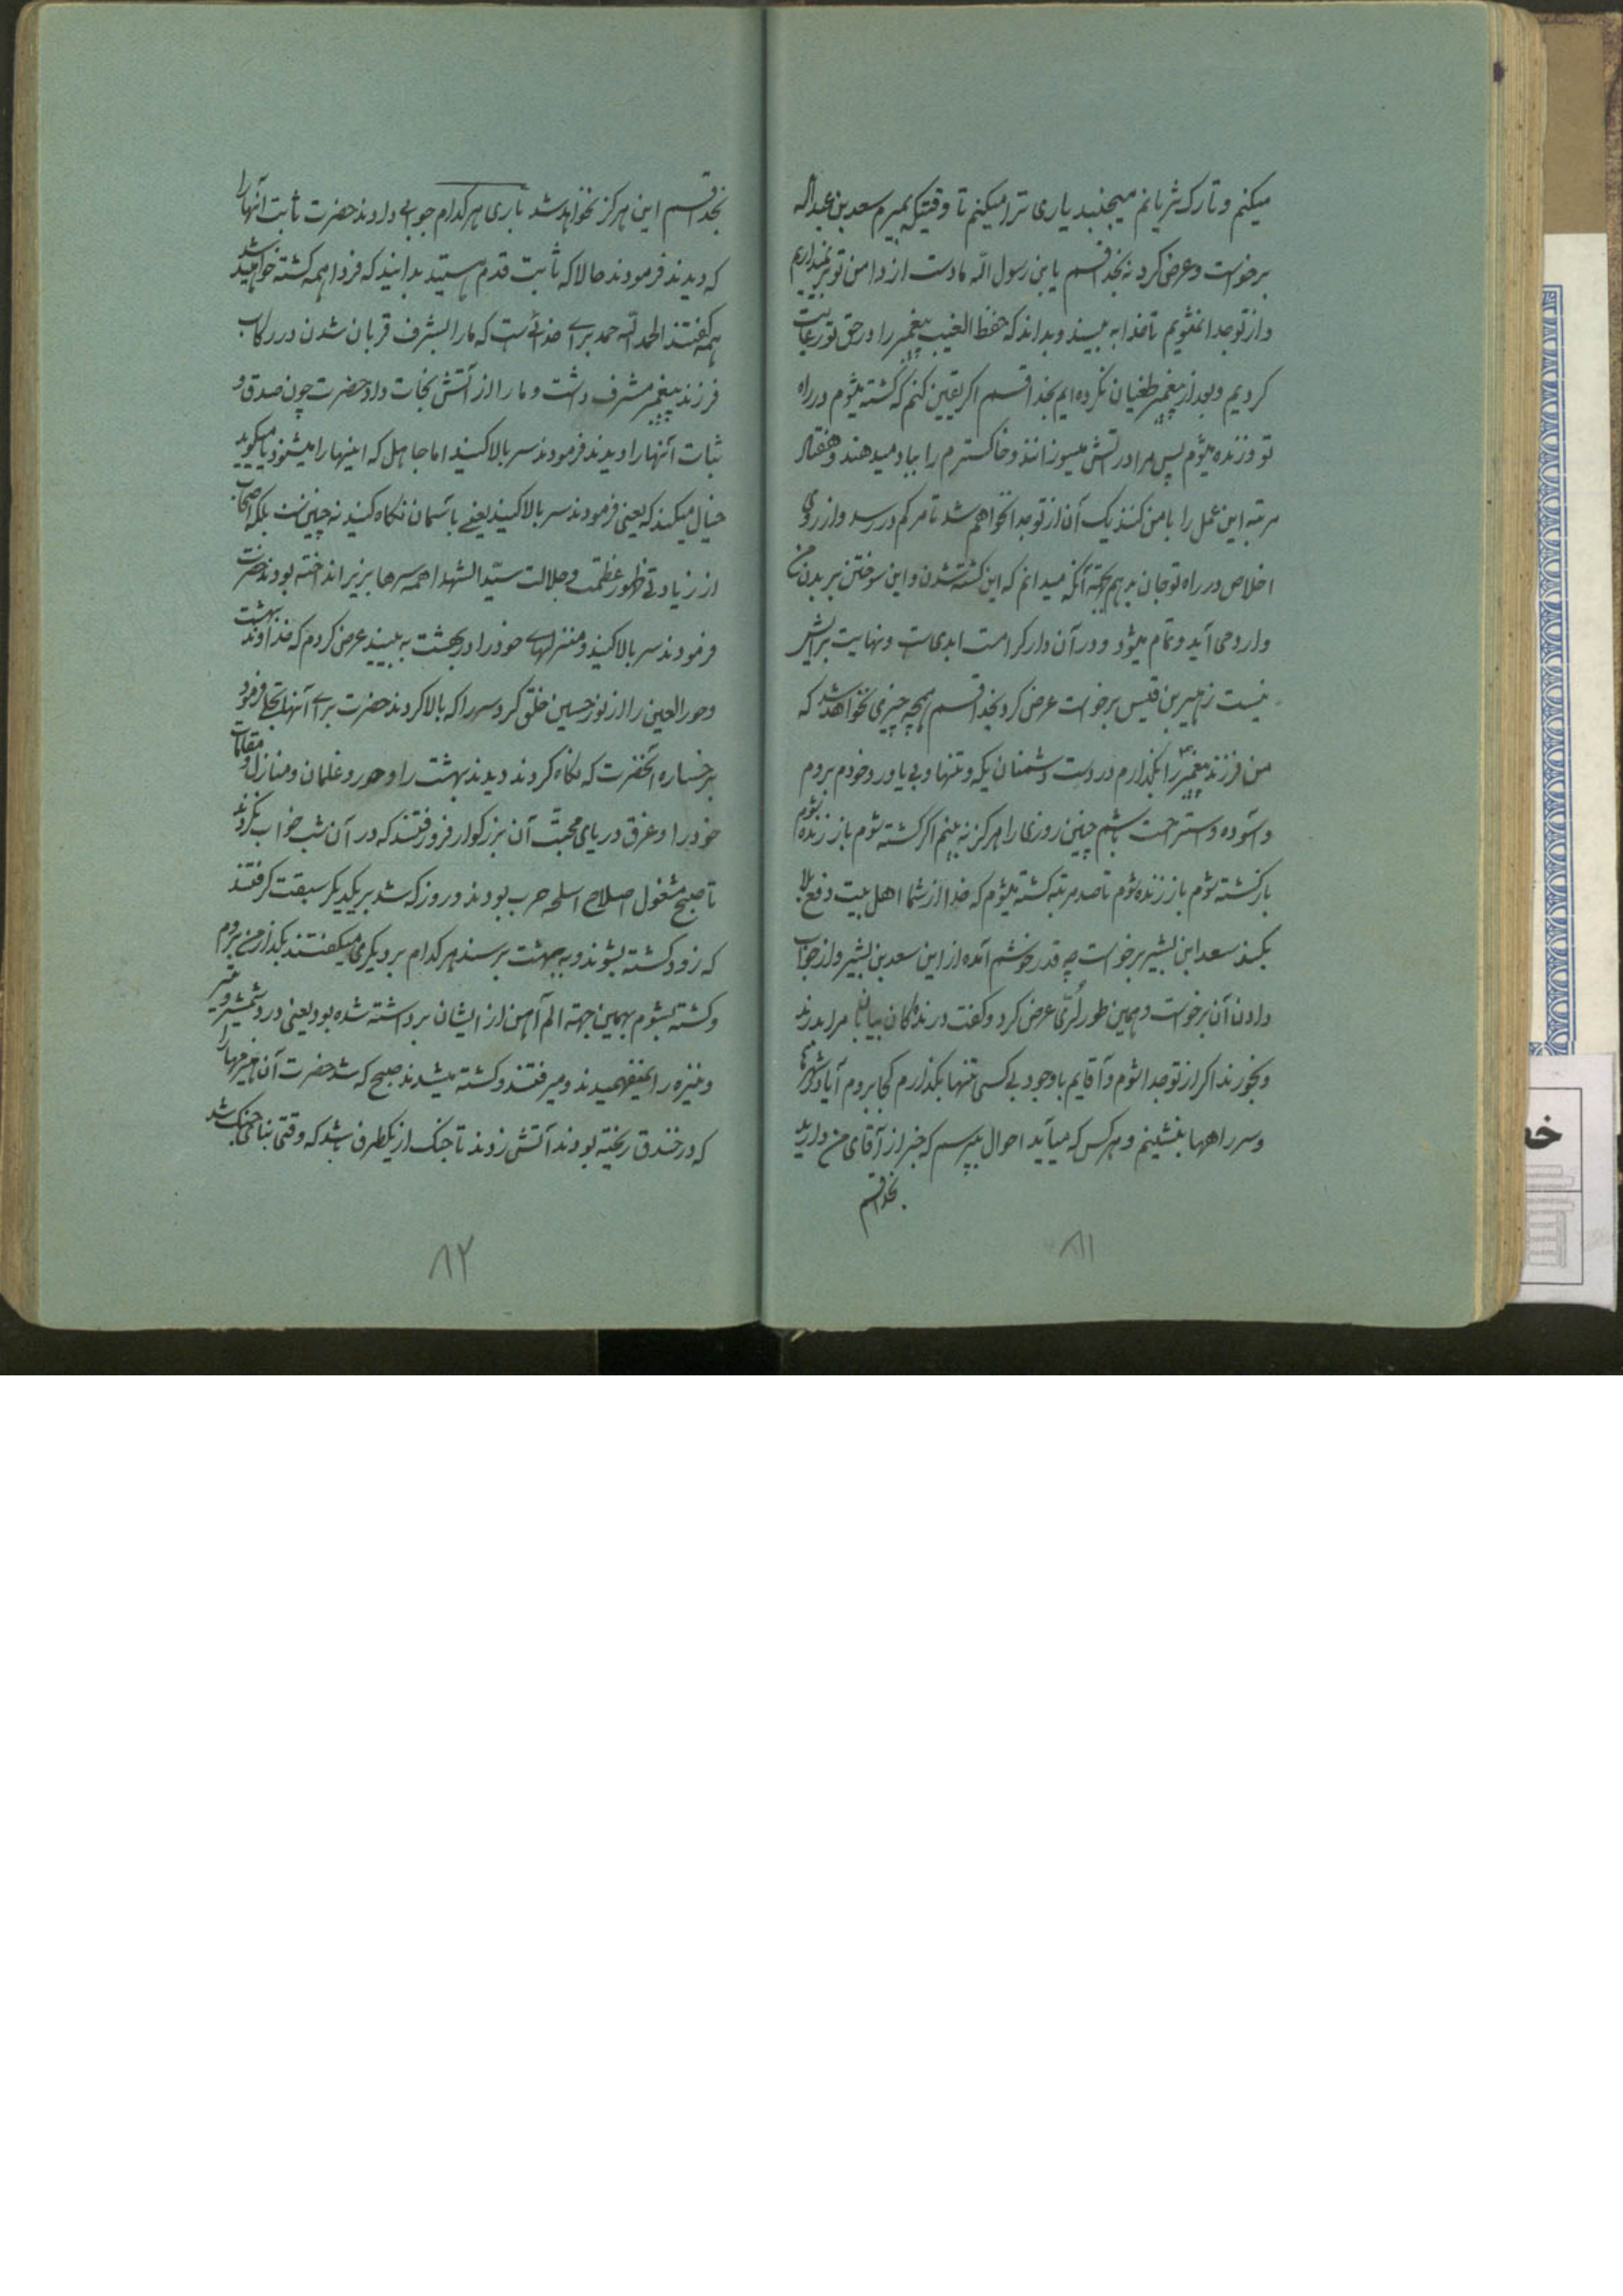 میکنم و تا رک شریانم میجنبد یاری ترا میکنم تا وقتیکه بمیرم سعد بن عبداله
برخواست و عرض کرد نه بخدا قسم یابن رسول الله ما دست از دامن تو بر نمیداریم
و از تو جدا نمیشویم تا خدا به بیند و بداند که حفظ الغیب پیغمبر را در حق تو رعایت
کردیم و بعد از پیغمبر طغیان نکرده ایم بخدا قسم اکر یقین کنم که کشته میشوم در راه
تو و زنده میشوم پس مرا در آتش میسوزانند و خاکسترم را بباد میدهند و هفتاد
مرتبه این عمل را با من کنند یک آن از تو جدا نخواهم شد تا مرکم در رسد و از روی
اخلاص در راه تو جان بدهم بجهة آنکه میدانم که این کشته شدن و این سوختن بر بدن من
وارد می آید و تمام میشود و در آن دار کرامت ابدی است و نهایت برایش
نیست زهیر بن قیس برخواست عرض کرد بخدا قسم همچه چیزی نخواهد شد که
من فرزند پیغمبر را بگذارم در دست دشمنان یکه و تنها و بی یاور و خودم بروم
و آسوده و استراحت باشم چنین روزی را هرکز نه بینم اکر کشته شوم باز زنده شوم
باز کشته شوم باز زنده شوم تا صد مرتبه کشته میشوم که خدا از شما اهل بیت دفع بلا
بکند سعد ابن بشیر برخواست چه قدر خوشم آمده از این سعد بن بشیر و از جواب
دادن آن برخواست و همین طور لُری عرض کرد و کفت درندکان بیابان مرا بدرند
و بخورند اکر از تو جدا شوم و آقایم با وجود بی کسی تنها بکذارم کجا بروم آیا در شهرها
و سر راهها بنشینم و هرکس که میآید احوال بپرسم که خبر از آقای من دارید
بخدا قسم
۸۱
بخدا قسم این هرکز نخواهد شد باری هرکدام جوابی دادند حضرت ثابت آنها را
که دیدند فرمودند حالا که ثابت قدم هستید بدانید که فردا همه کشته خواهید شد
همه کفتند الحمد الله حمد برای خدائی است که ما را بشرف قربان شدن در رکاب
فرزند پیغمبر مشرف داشت و ما را از آتش نجات داد حضرت چون صدق و
ثبات آنها را دیدند فرمودند سر بالا کنید اما جاهل که اینها را میشنود یا میکوید
خیال میکند که یعنی فرمودند سر بالا کنید یعنی بآسمان نکاه کنید نه چنین است بلکه اصحاب
از زیادتی ظهور عظمت و جلالت سیّد الشهدا همه سرها بزیر انداخته بودند حضرت
فرمودند سر بالا کنید و منزلهای خود را در بهشت به بینید عرض کردم که خداوند بهشت
و حور العین را از نور حسین خلق کرد سر را که بالا کردند حضرت برای آنها تجلی فرمود
برخساره آنحضرت که نکاه کردند دیدند بهشت را و حور و غلمان و منازل و مقامات
خود را و غرق دریای محبّت آن بزرکوار فرو رفتند که در آن شب خواب نکردند
تا صبح مشغول اصلاح اسلحه حرب بودند و روز که شد بر یکدیکر سبقت کرفتند
که زود کشته بشوند و به بهشت برسند هرکدام بر دیکری میکفتند بکذار من بروم
و کشته بشوم بهمین جهة الم آهن از ایشان برداشته شده بود یعنی درد شمشیر و تیر
و نیزه را نمیفهمیدند و میرفتند و کشته میشدند صبح که شد حضرت آن هیزمها را
که در خندق ریخته بودند آتش زدند تا جنک از یکطرف باشد که وقتی بنای جنک شد
۸۲